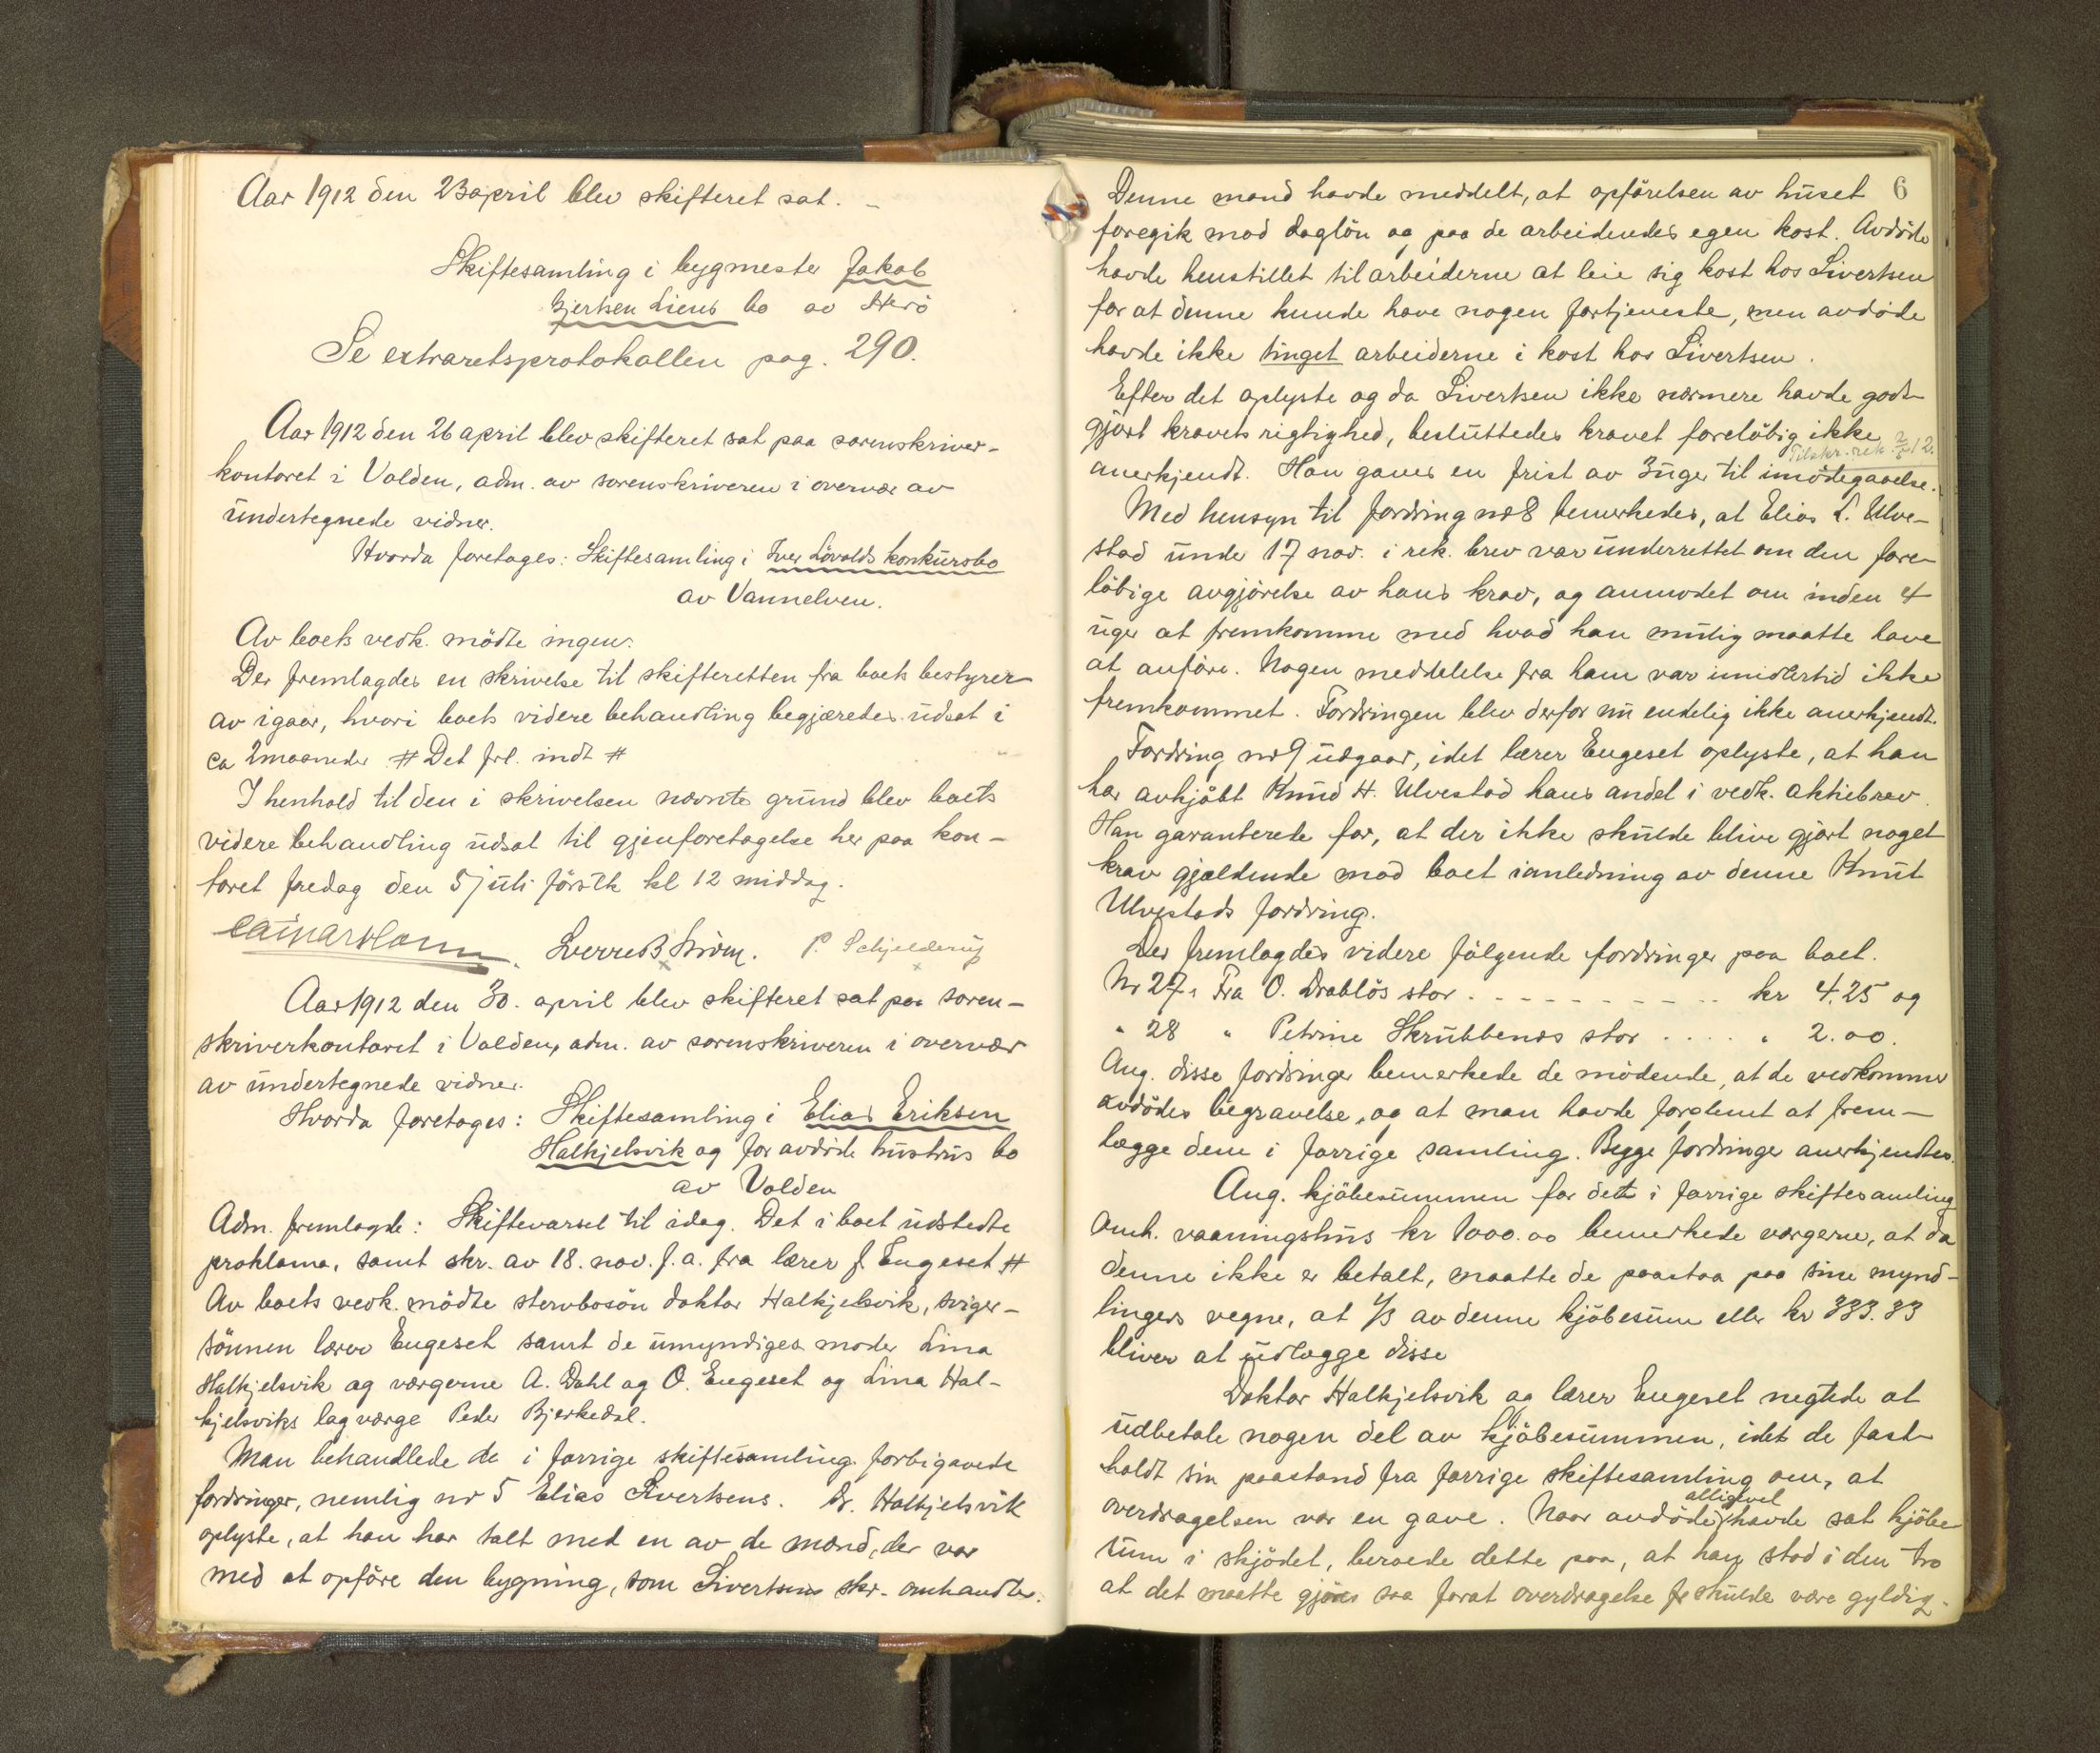 Aar 1912 den 23 april blev skifteret sat. –
Skiftesamling i bygmester Jakob
Gjertsen Liens bo av Herö
Se extraretsprotokollen pag. 290.
Aar 1912 den 26 april blev skifteret sat paa sorenskriver-
kontoret i Volden, adm. av sorenskriveren i overvær av
undertegnede vidner.
Hvorda foretages: Skiftesamling i Iver Lövolds konkursbo
av Vannelven.
Av boets vedk. mödte ingen.
Der fremlagdes en skrivelse til skifteretten fra boets bestyrer
av igaar, hvori boets videre behandling begjæredes udsat i
ca 2 maaneder # Det frl. indt #
I henhold til den i skrivelsen nævnte grund blev boets
videre behandling udsat til gjenforetagelse her paa kon-
toret fredag den 5 juli förstk kl 12 middag.
Sverre B Ström. P. Schjelderup
Aar 1912 den 30. april blev skifteret sat paa soren-
skriverkontoret i Volden, adm. av sorenskriveren i overvær
av undertegnede vidner.
Hvorda foretages: Skiftesamling i Elias Eriksen
Halkjelsvik og for avdöde hustrus bo
av Volden
Adm. fremlagde: Skiftevarsel til idag. Det i boet udstedte
proklama, samt skr. av 18. nov. f. a. fra lærer J. Engeset #
Av boets vedk. mödte stervbosön doktor Halkjelsvik, sviger-
sönnen lærer Engeset samt de umyndiges moder Lina
Halkjelsvik og værgerne A. Dahl og O. Engeset og Lina Hal-
kjelsviks lagværge Peder Bjerkedal.
Man behandlede de i forrige skiftesamling forbigaaede
fordringer, nemlig nr 5 Elias Sivertsens. Dr. Halkjelsvik
oplyste, at han har talt med en av de mænd, der var
med at opföre den bygning, som Sivertsens skr. omhandler.
6
Denne mand havde meddelt, at opförelsen av huset
foregik mod daglön og paa de arbeidendes egen kost. Avdöde
havde henstillet til arbeiderne at leie sig kost hos Sivertsen
for at denne kunde have nogen fortjeneste, men avdöde
havde ikke tinget arbeiderne i kost hos Sivertsen.
Efter det oplyste og da Sivertsen ikke nærmere havde godt-
gjort kravets rigtighed, besluttedes kravet forelöbig ikke
Tilskr. rek. 2/5 12.
anerkjendt. Han gaves en frist av 3 uger til imödegaaelse.
Med hensyn til fordring nr 8 bemerkedes, at Elias L. Ulve-
stad under 17 nov. i rek. brev var underrettet om den fore-
löbige avgjörelse av hans krav, og anmodet om inden 4
uger at fremkomme med hvad han mulig maatte have
at anföre. Nogen meddelelse fra ham var imidlertid ikke
fremkommet. Fordringen blev derfor nu endelig ikke anerkjendt.
Fordring nr 9 udgaar, idet lærer Engeset oplyste, at han
har avkjöbt Knud H. Ulvestad hans andel i vedk. aktiebrev.
Han garanterede for, at der ikke skulde blive gjort noget
krav gjældende mod boet i anledning av denne Knut
Ulvestads fordring.
Der fremlagdes videre fölgende fordringer paa boet.
Nr 27, Fra O. Drablös stor . . . . . . . . . . kr 4.25 og
" 28 " Petrine Skrubbenes stor . . . . " 2.00.
Ang. disse fordringer bemerkede de mödende, at de vedkommer
avdödes begravelse, og at man havde forglemt at frem-
lægge dem i forrige samling. Begge fordringer anerkjendtes.
Ang. kjöbesummen for det i forrige skiftesamling
omh. vaaningshus kr 1000.00 bemerkede værgerne, at da
denne ikke er betalt, maatte de paastaa paa sine mynd-
lingers vegne, at 1/3 av denne kjöbesum eller kr 333.33
bliver at udlægge disse
Doktor Halkjelsvik og lærer Engeset negtede at
udbetale nogen del av kjöbesummen, idet de fast-
holdt sin paastand fra forrige skiftesamling om, at
overdragelsen var en gave. Naar avdöde alligevel havde sat kjöbe-
sum i skjödet, beroede dette paa, at han stod i den tro
at det maatte gjöres saa forat overdragelse skulde være gyldig.